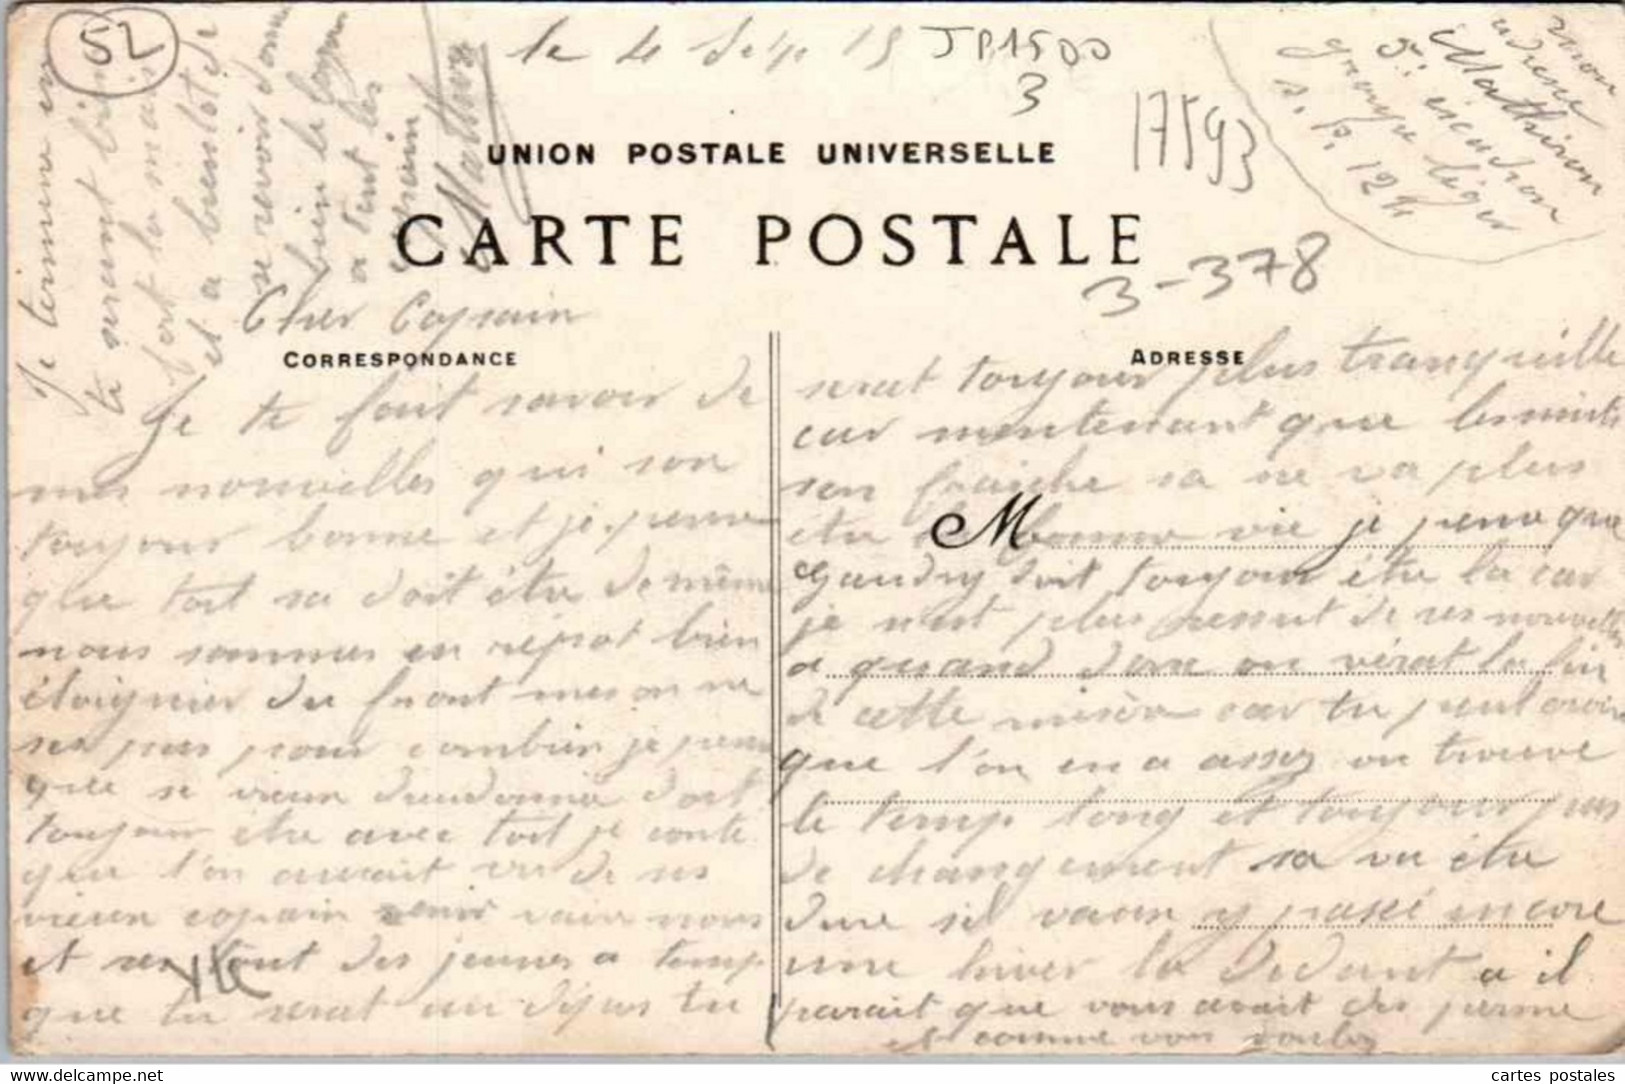 52
le 4 Sep 15
JP1500
3
17593
3-378
UNION POSTALE UNIVERSELLE
CARTE POSTALE
CORRESPONDANCE
ADRESSE
M
mon
adresse
Mathiron
5e escadron
groupe léger
S. P. 124
Cher Copain
Je te fait savoir de
mes nouvelles qui son
toujour bonne et je pense
que toit sa doit étre de même
nous sommes en repot bien
éloignier du front mes on ne
ses pas pour combien je pense
que se vieux doit
toujour étre avec toit je conte
que l'on aurait vu de ses
vieux copain venir voir nous
et ses tout des jeunes a temp
que tu serat au dépos tu
serat toujour plus tranquille
car mentenant que les nuits
son fraiche sa ne va plus
étre la bonne vie je pense que
Gaudry doit toujour étre la car
je n'est plus ressut de ses nouvelles
a quand donc on vérat la fin
de cette misère car tu peut croire
que l'on en a assez on trouve
le temp long et toujour pas
de changement sa va étre
dure sil vaux y passé encore
une hiver la dedant a il
parait que vous avait des perme
comme vous voulez
Je termine en
te serrant bien
fort la main
et a bientot de
se revoir donne
bien le bonjour
a tout les
copain
Mathiron